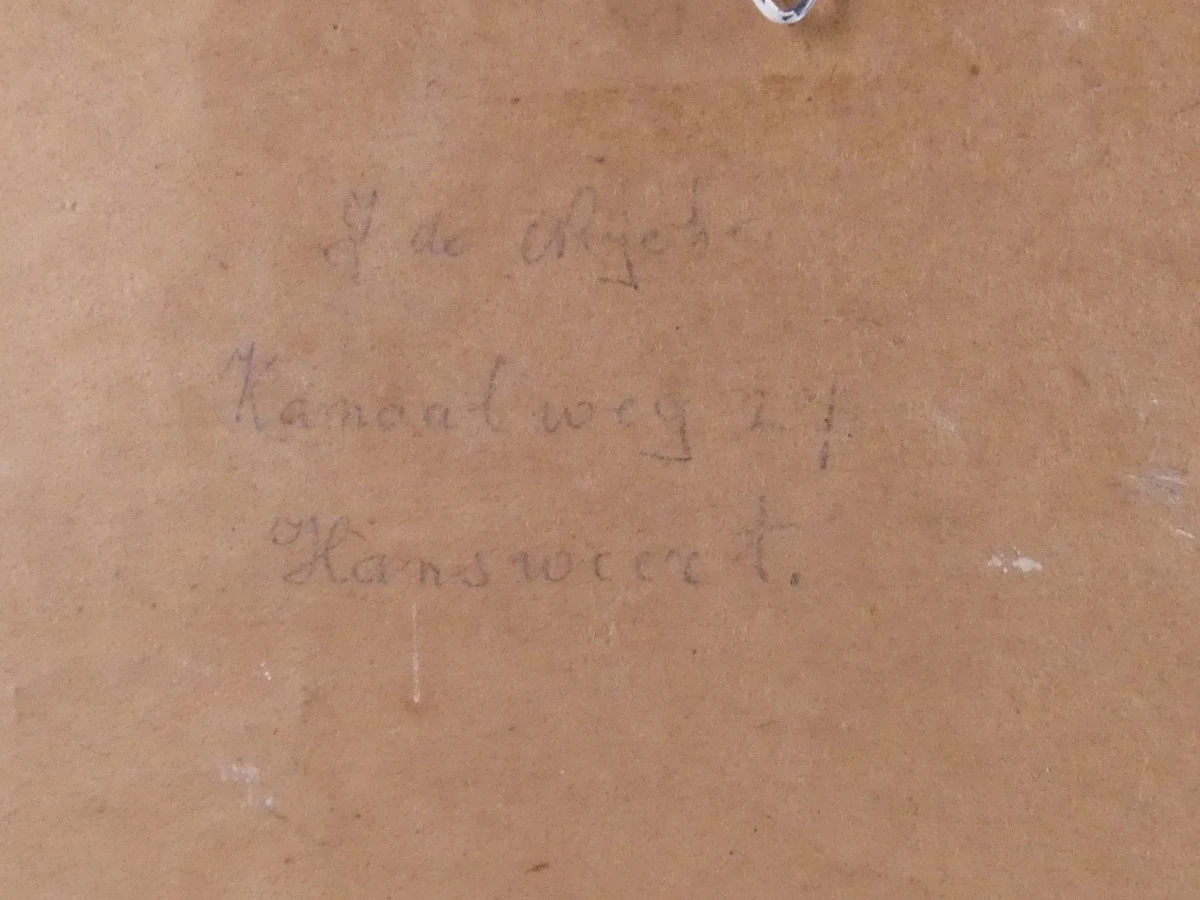 J de
Kanaalweg 27
Hansweert.